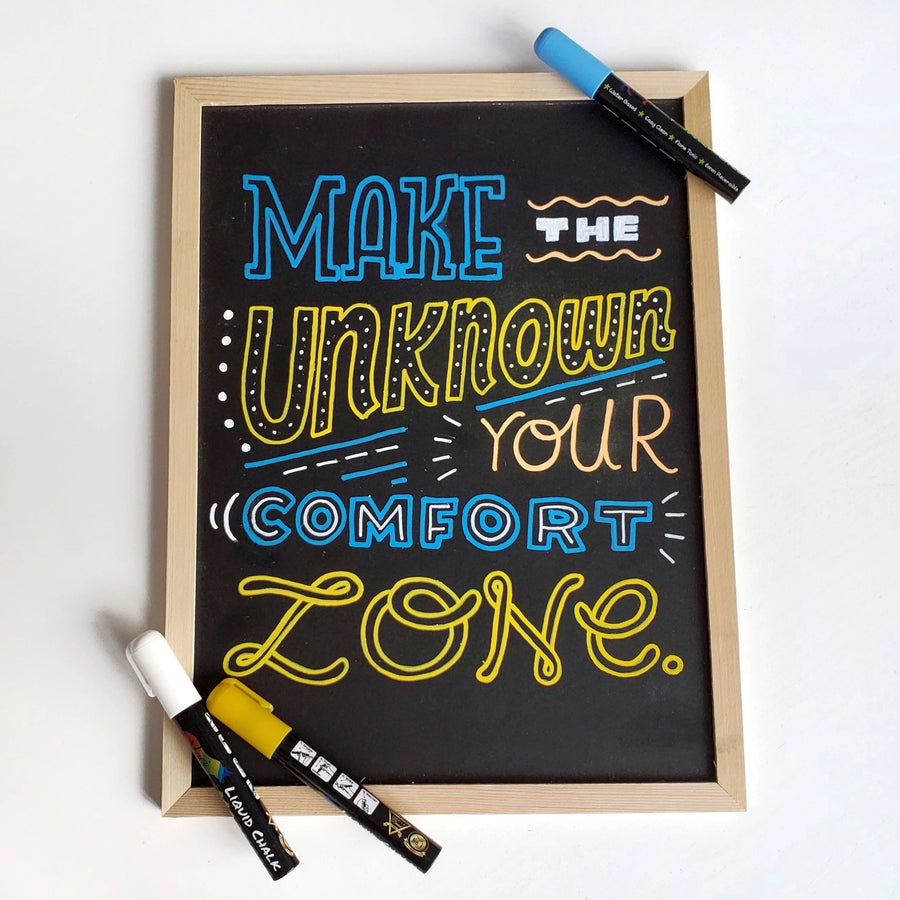 MAKE THE
UNKNOWN
YOUR
COMFORT
ZONE.
Water-Based ★ Easy Clean ★ None Toxic ★ 6mm Reversible
LIQUID CHALK